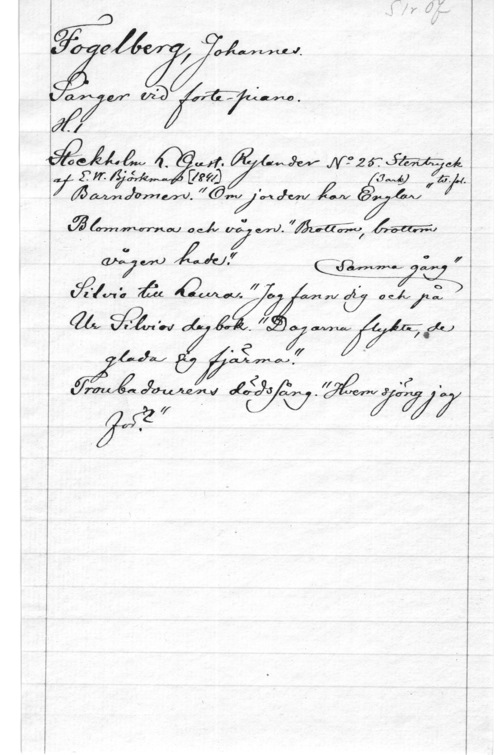 Fogelberg, Johannes.
Sånger vid forte-piano.
H. 1
Stockholm h. Gust. Rylander No 25. Stentryck
af E. W. Björkman
Barndomen. "Om jorden har Englar"
Blommorna och vågen. "Brottom, brottom
vågen hade."
Samma gång"
Silvio till Laura. "Jag fann dig och på
Ur Silvios dagbok. "Dagarna flykta, de
glada sig fjärma."
Troubadourens dödssång. "Hvem sjöng jag
för?"